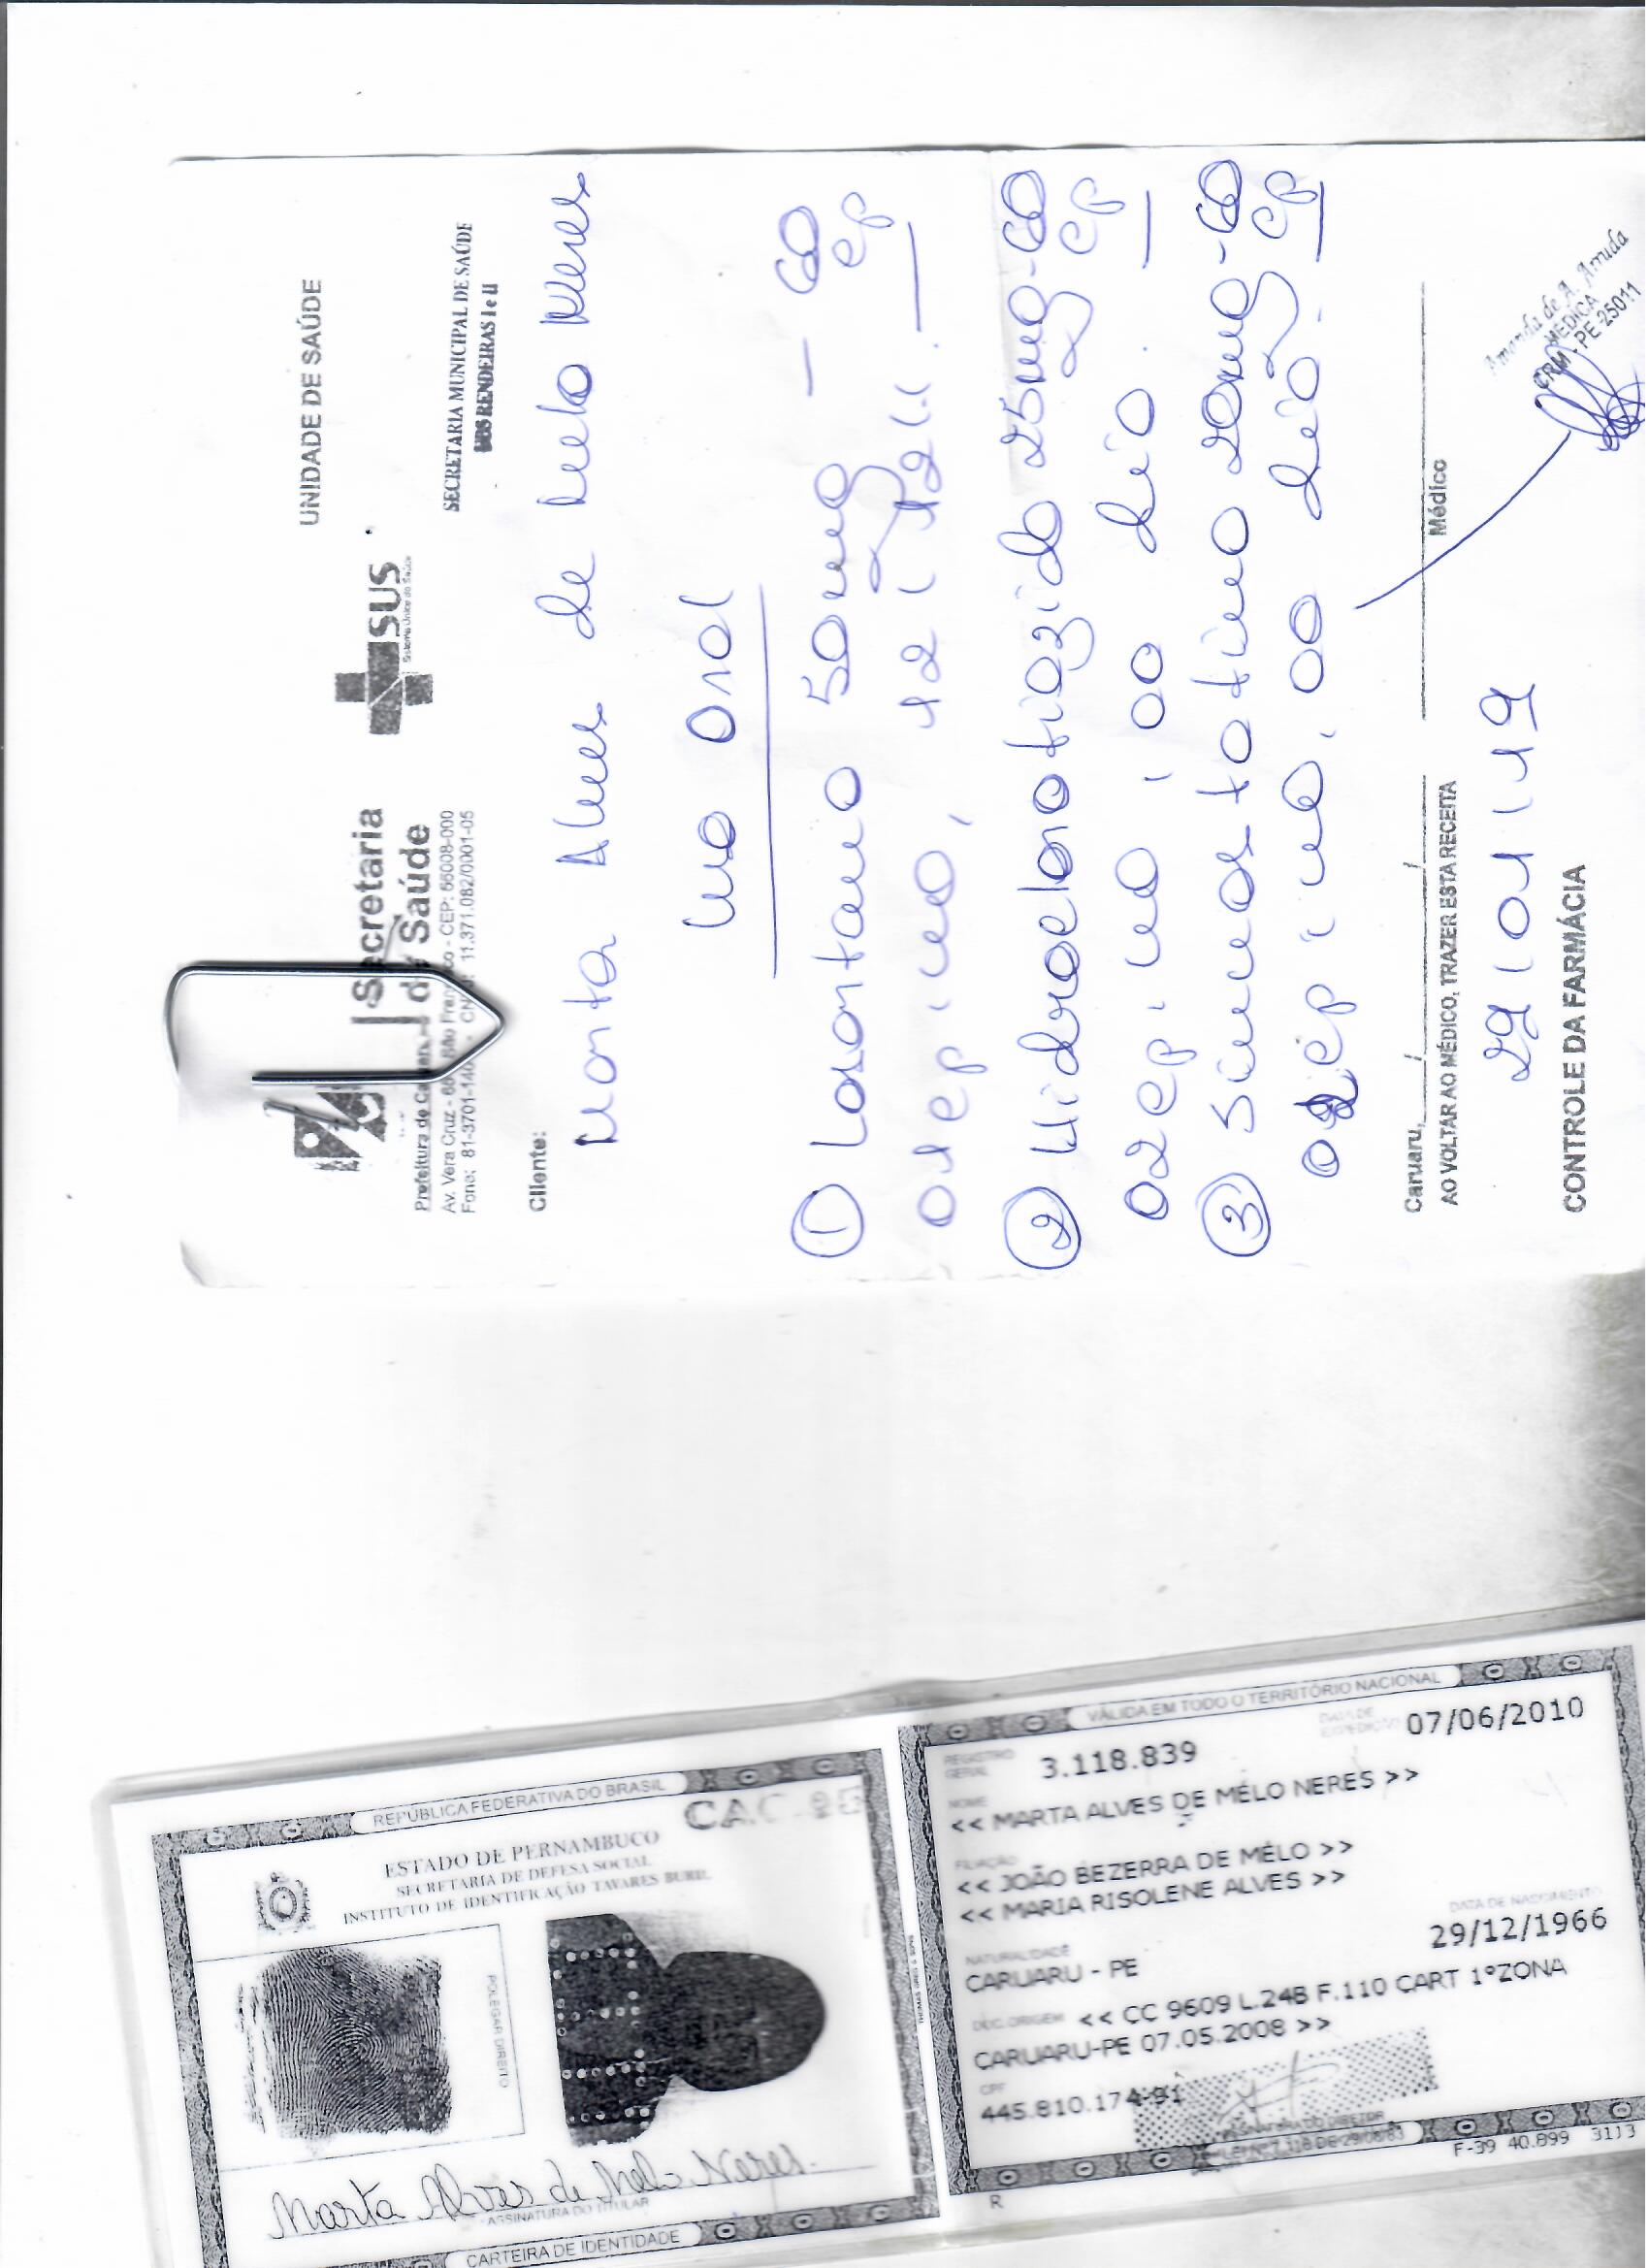 UNIDADE DE SAÚDE
Secretaria
de Saúde
SUS
Sistema Único de Saúde
Av. Vera Cruz - São CEP: 55008-000
Fone: 81-3701-140 11.371.082/0001-05
SECRETARIA MUNICIPAL DE SAÚDE
UBS RENDEIRAS I e II
Cliente:
Marta Alves de Melo Neres
Uso Oral
① Losartana 50mg — 60 cp
01 cp, 12/12h.
② Hidroclorotiazida 25mg - 60 cp
02 cp ao dia.
③ Sinvastatina 20mg - 60 cp
cp ao dia.
Caruaru,____/____/____
Médico
AO VOLTAR AO MÉDICO, TRAZER ESTA RECEITA
Amanda de A. Arruda
MÉDICA
CRM-PE 25011
29/01/19
CONTROLE DA FARMÁCIA
REPÚBLICA FEDERATIVA DO BRASIL
ESTADO DE PERNAMBUCO
SECRETARIA DE DEFESA SOCIAL
INSTITUTO DE IDENTIFICAÇÃO TAVARES BURIL
POLEGAR DIREITO
Marta Alves de Melo Neres.
ASSINATURA DO TITULAR
CARTEIRA DE IDENTIDADE
VÁLIDA EM TODO O TERRITÓRIO NACIONAL
REGISTRO GERAL 3.118.839 DATA DE EXPEDIÇÃO 07/06/2010
NOME
<< MARTA ALVES DE MÉLO NERES >>
FILIAÇÃO
<< JOÃO BEZERRA DE MÉLO >>
<< MARIA RISOLENE ALVES >>
NATURALIDADE DATA DE NASCIMENTO
CARUARU - PE 29/12/1966
DOC.ORIGEM << CC 9609 L.24B F.110 CART 1ºZONA
CARUARU-PE 07.05.2008 >>
CPF
445.810.174-91
ASSINATURA DO DIRETOR
LEI Nº 7.116 DE 29/08/83
R
F-39 40.899 3113